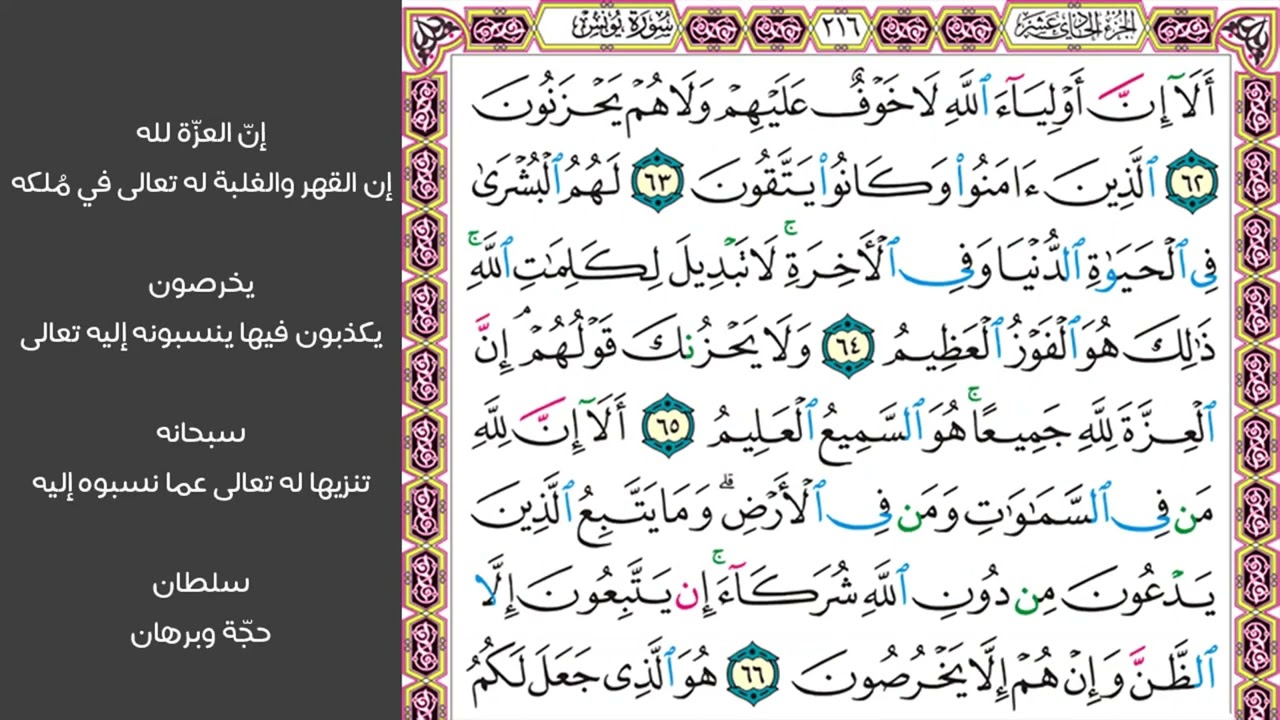 الجزء الحادي عشر
٢١٦
سورة يونس
أَلَآ إِنَّ أَوْلِيَآءَ ٱللَّهِ لَا خَوْفٌ عَلَيْهِمْ وَلَا هُمْ يَحْزَنُونَ
٦٢ ٱلَّذِينَ ءَامَنُوا۟ وَكَانُوا۟ يَتَّقُونَ ٦٣ لَهُمُ ٱلْبُشْرَىٰ
فِى ٱلْحَيَوٰةِ ٱلدُّنْيَا وَفِى ٱلْـَٔاخِرَةِ ۚ لَا تَبْدِيلَ لِكَلِمَـٰتِ ٱللَّهِ ۚ
ذَٰلِكَ هُوَ ٱلْفَوْزُ ٱلْعَظِيمُ ٦٤ وَلَا يَحْزُنكَ قَوْلُهُمْ ۘ إِنَّ
ٱلْعِزَّةَ لِلَّهِ جَمِيعًا ۚ هُوَ ٱلسَّمِيعُ ٱلْعَلِيمُ ٦٥ أَلَآ إِنَّ لِلَّهِ
مَن فِى ٱلسَّمَـٰوَٰتِ وَمَن فِى ٱلْأَرْضِ ۗ وَمَا يَتَّبِعُ ٱلَّذِينَ
يَدْعُونَ مِن دُونِ ٱللَّهِ شُرَكَآءَ ۚ إِن يَتَّبِعُونَ إِلَّا
ٱلظَّنَّ وَإِنْ هُمْ إِلَّا يَخْرُصُونَ ٦٦ هُوَ ٱلَّذِى جَعَلَ لَكُمُ
إنّ العزّة لله
إن القهر والغلبة له تعالى في مُلكه
يخرصون
يكذبون فيها ينسبونه إليه تعالى
سبحانه
تنزيها له تعالى عما نسبوه إليه
سلطان
حجّة وبرهان